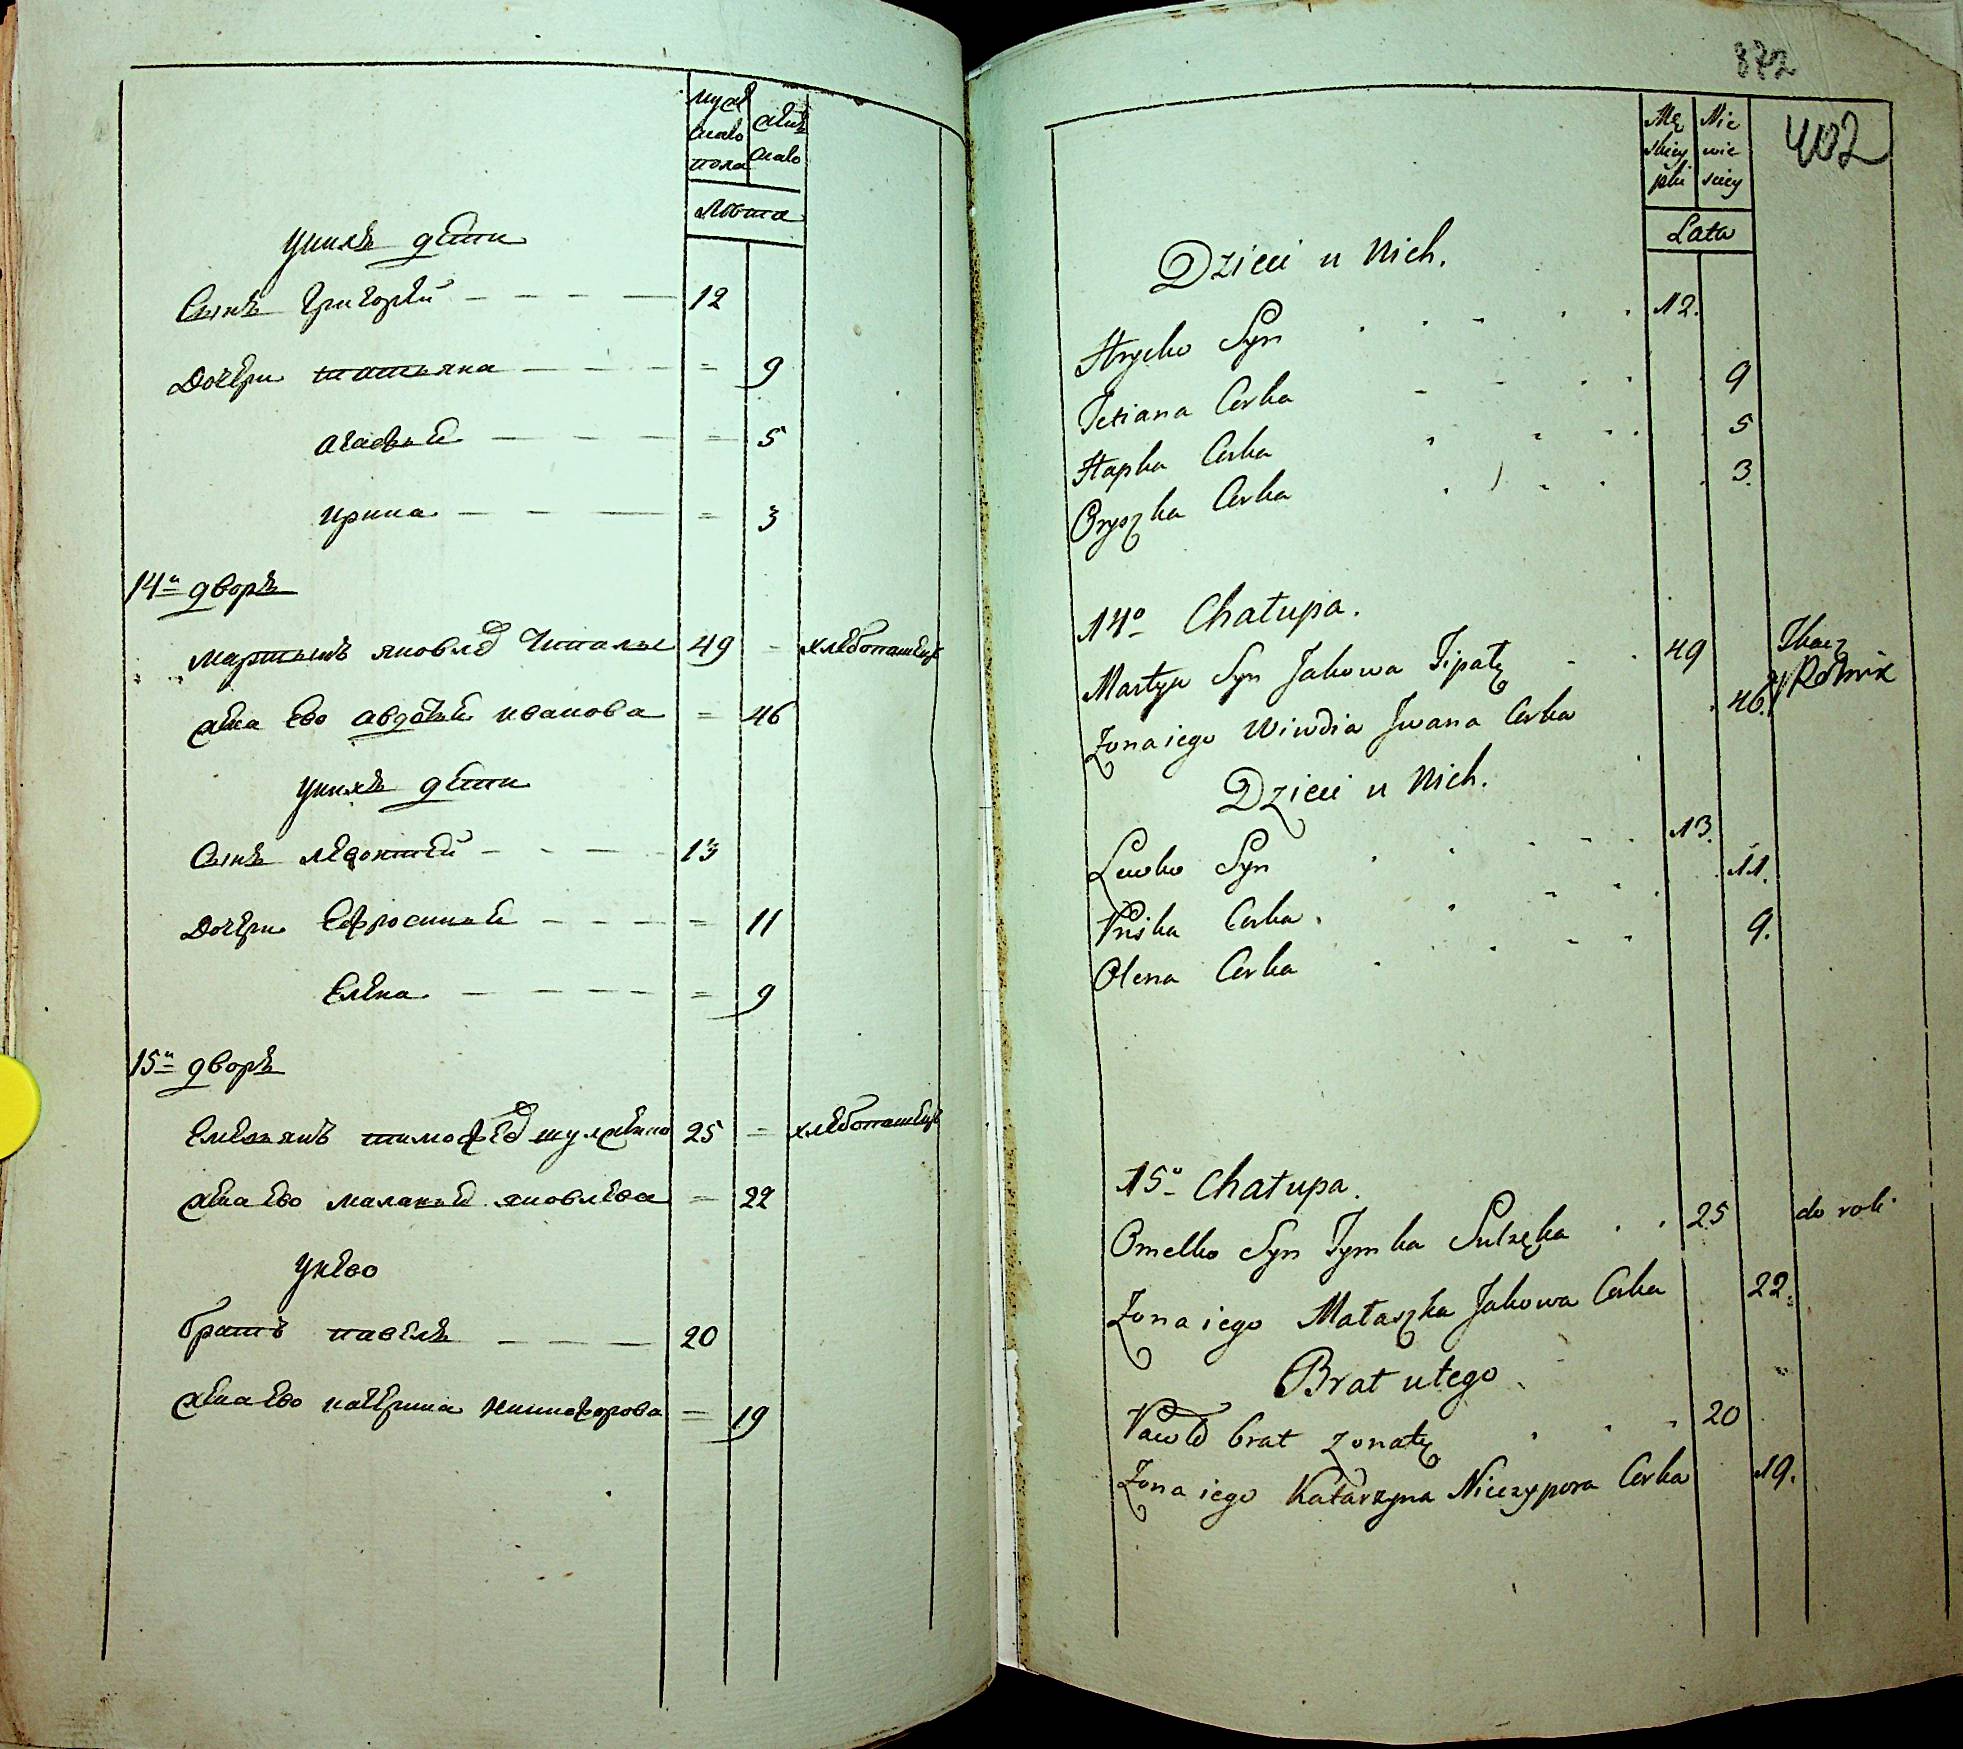 муж
скаво
пола
женъ
скаво
лѣта
унихъ дѣти
Сынъ Григорей 12
Дочери татьяна = 9
агафья = 5
ирина = 3
14й дворъ
мартынъ яковлев 49 - хлебопашецъ
жена ево авдотья иванова = 46
унихъ дѣти
Сынъ леонтей 13
Дочери Ефросинья = 11
Елена = 9
15й дворъ
Емельянъ тимофеев 25 = хлебопашецъ
жена ево маланья яковлева = 22
унево
братъ павелъ 20
жена ево катерина никифорова = 19
372
402
Mę
skiey
płci
Nie
wie
sciey
Lata
Dzieci u Nich.
Hrycko Syn 12.
Tetiana Corka 9
Hapka Corka 5
Oryszka Corka 3.
14o Chałupa.
Martyn Syn Jakowa 49 Tkacz
y Rolnik
Zona iego Wiwdia Jwana Corka 46.
Dzieci u Nich.
Lewko Syn 13.
Priska Corka. 11.
Olena Corka 9.
15o Chałupa.
Omelko Syn Tymka Sulzęka 25 do roli
Zona iego Małaszka Jakowa Corka 22.
Brat utego
Pawło brat zonaty 20
Zona iego Katarzyna Niczypora Corka 19.